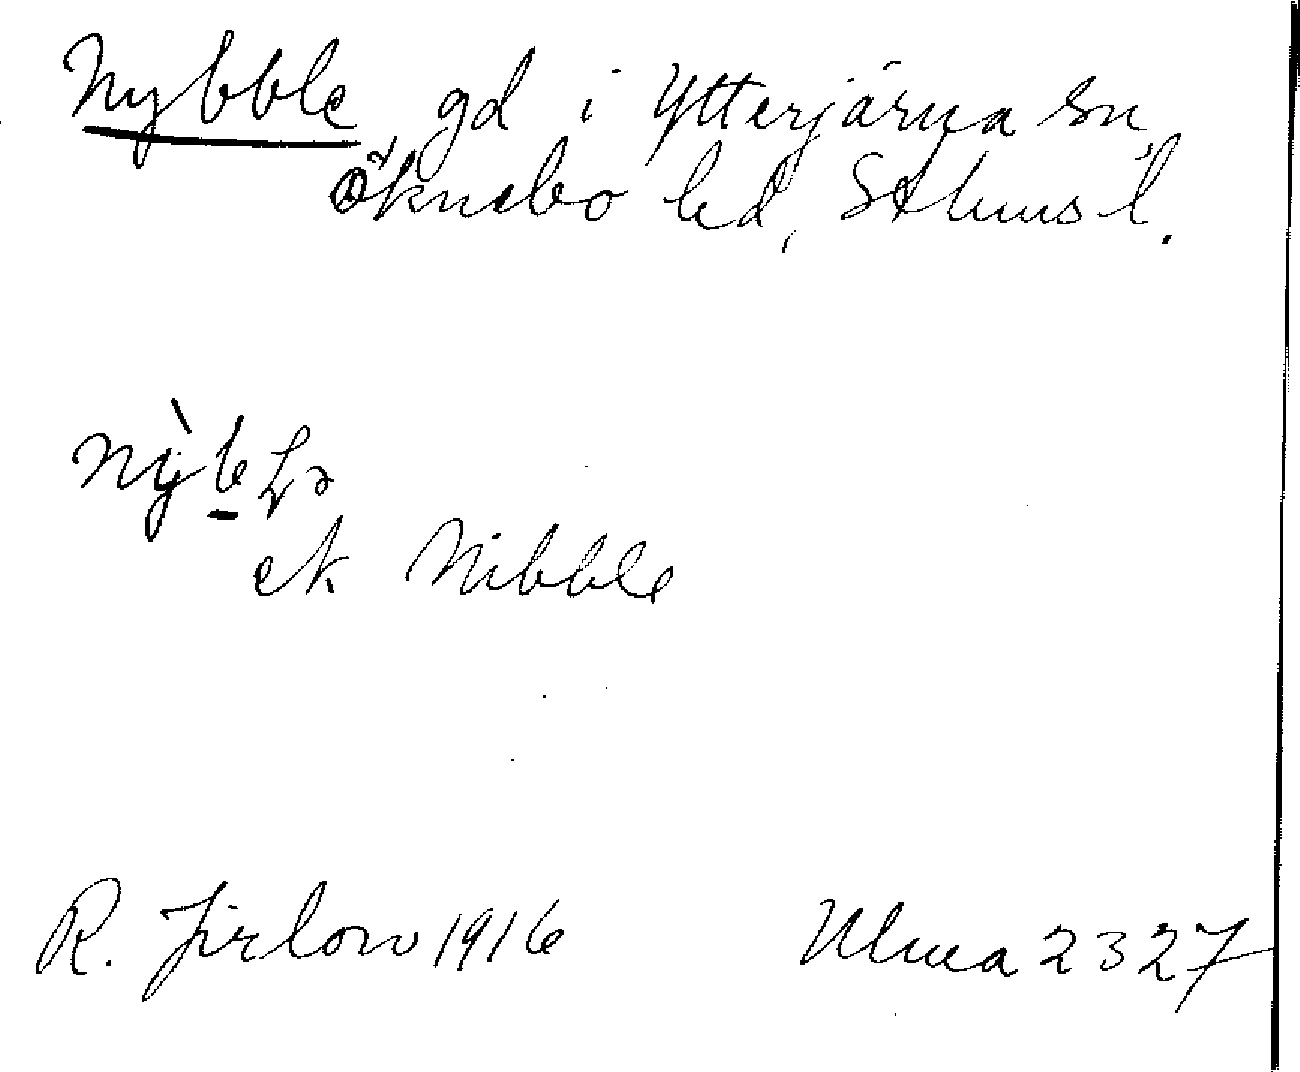 Nybble gd i Ytterjärna sn,
Öknebo hd, Sthms l.
ek Nibble
R. Jirlow 1916 Ulma 2327